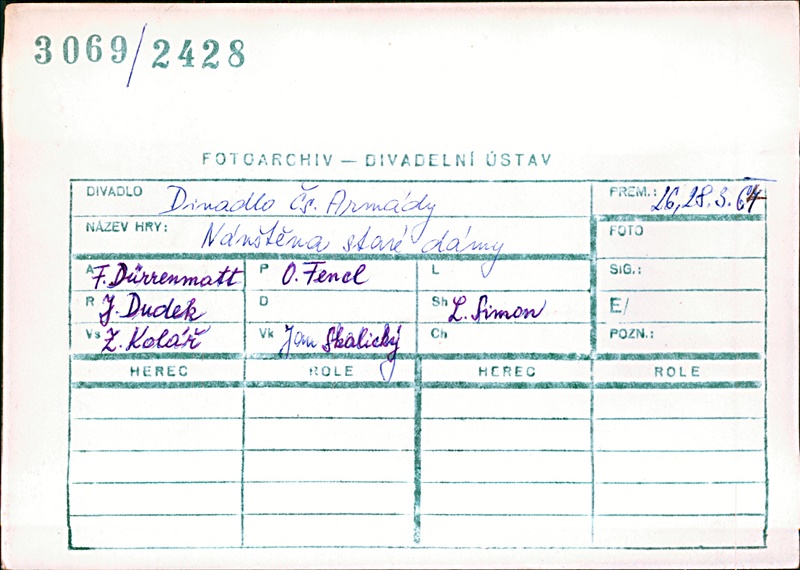 3069/2428
FOTOARCHIV — DIVADELNÍ ÚSTAV
DIVADLO Divadlo Čs. Armády PREM.: 26, 28.3.64
NÁZEV HRY: Návštěna staré dámy FOTO
A F. Dürrenmatt P O. Fencl L SIG.:
R J. Dudek D Sh L. Simon E/
Vs Z. Kolář Vk Jan Skalický Ch POZN.:
HEREC ROLE HEREC ROLE